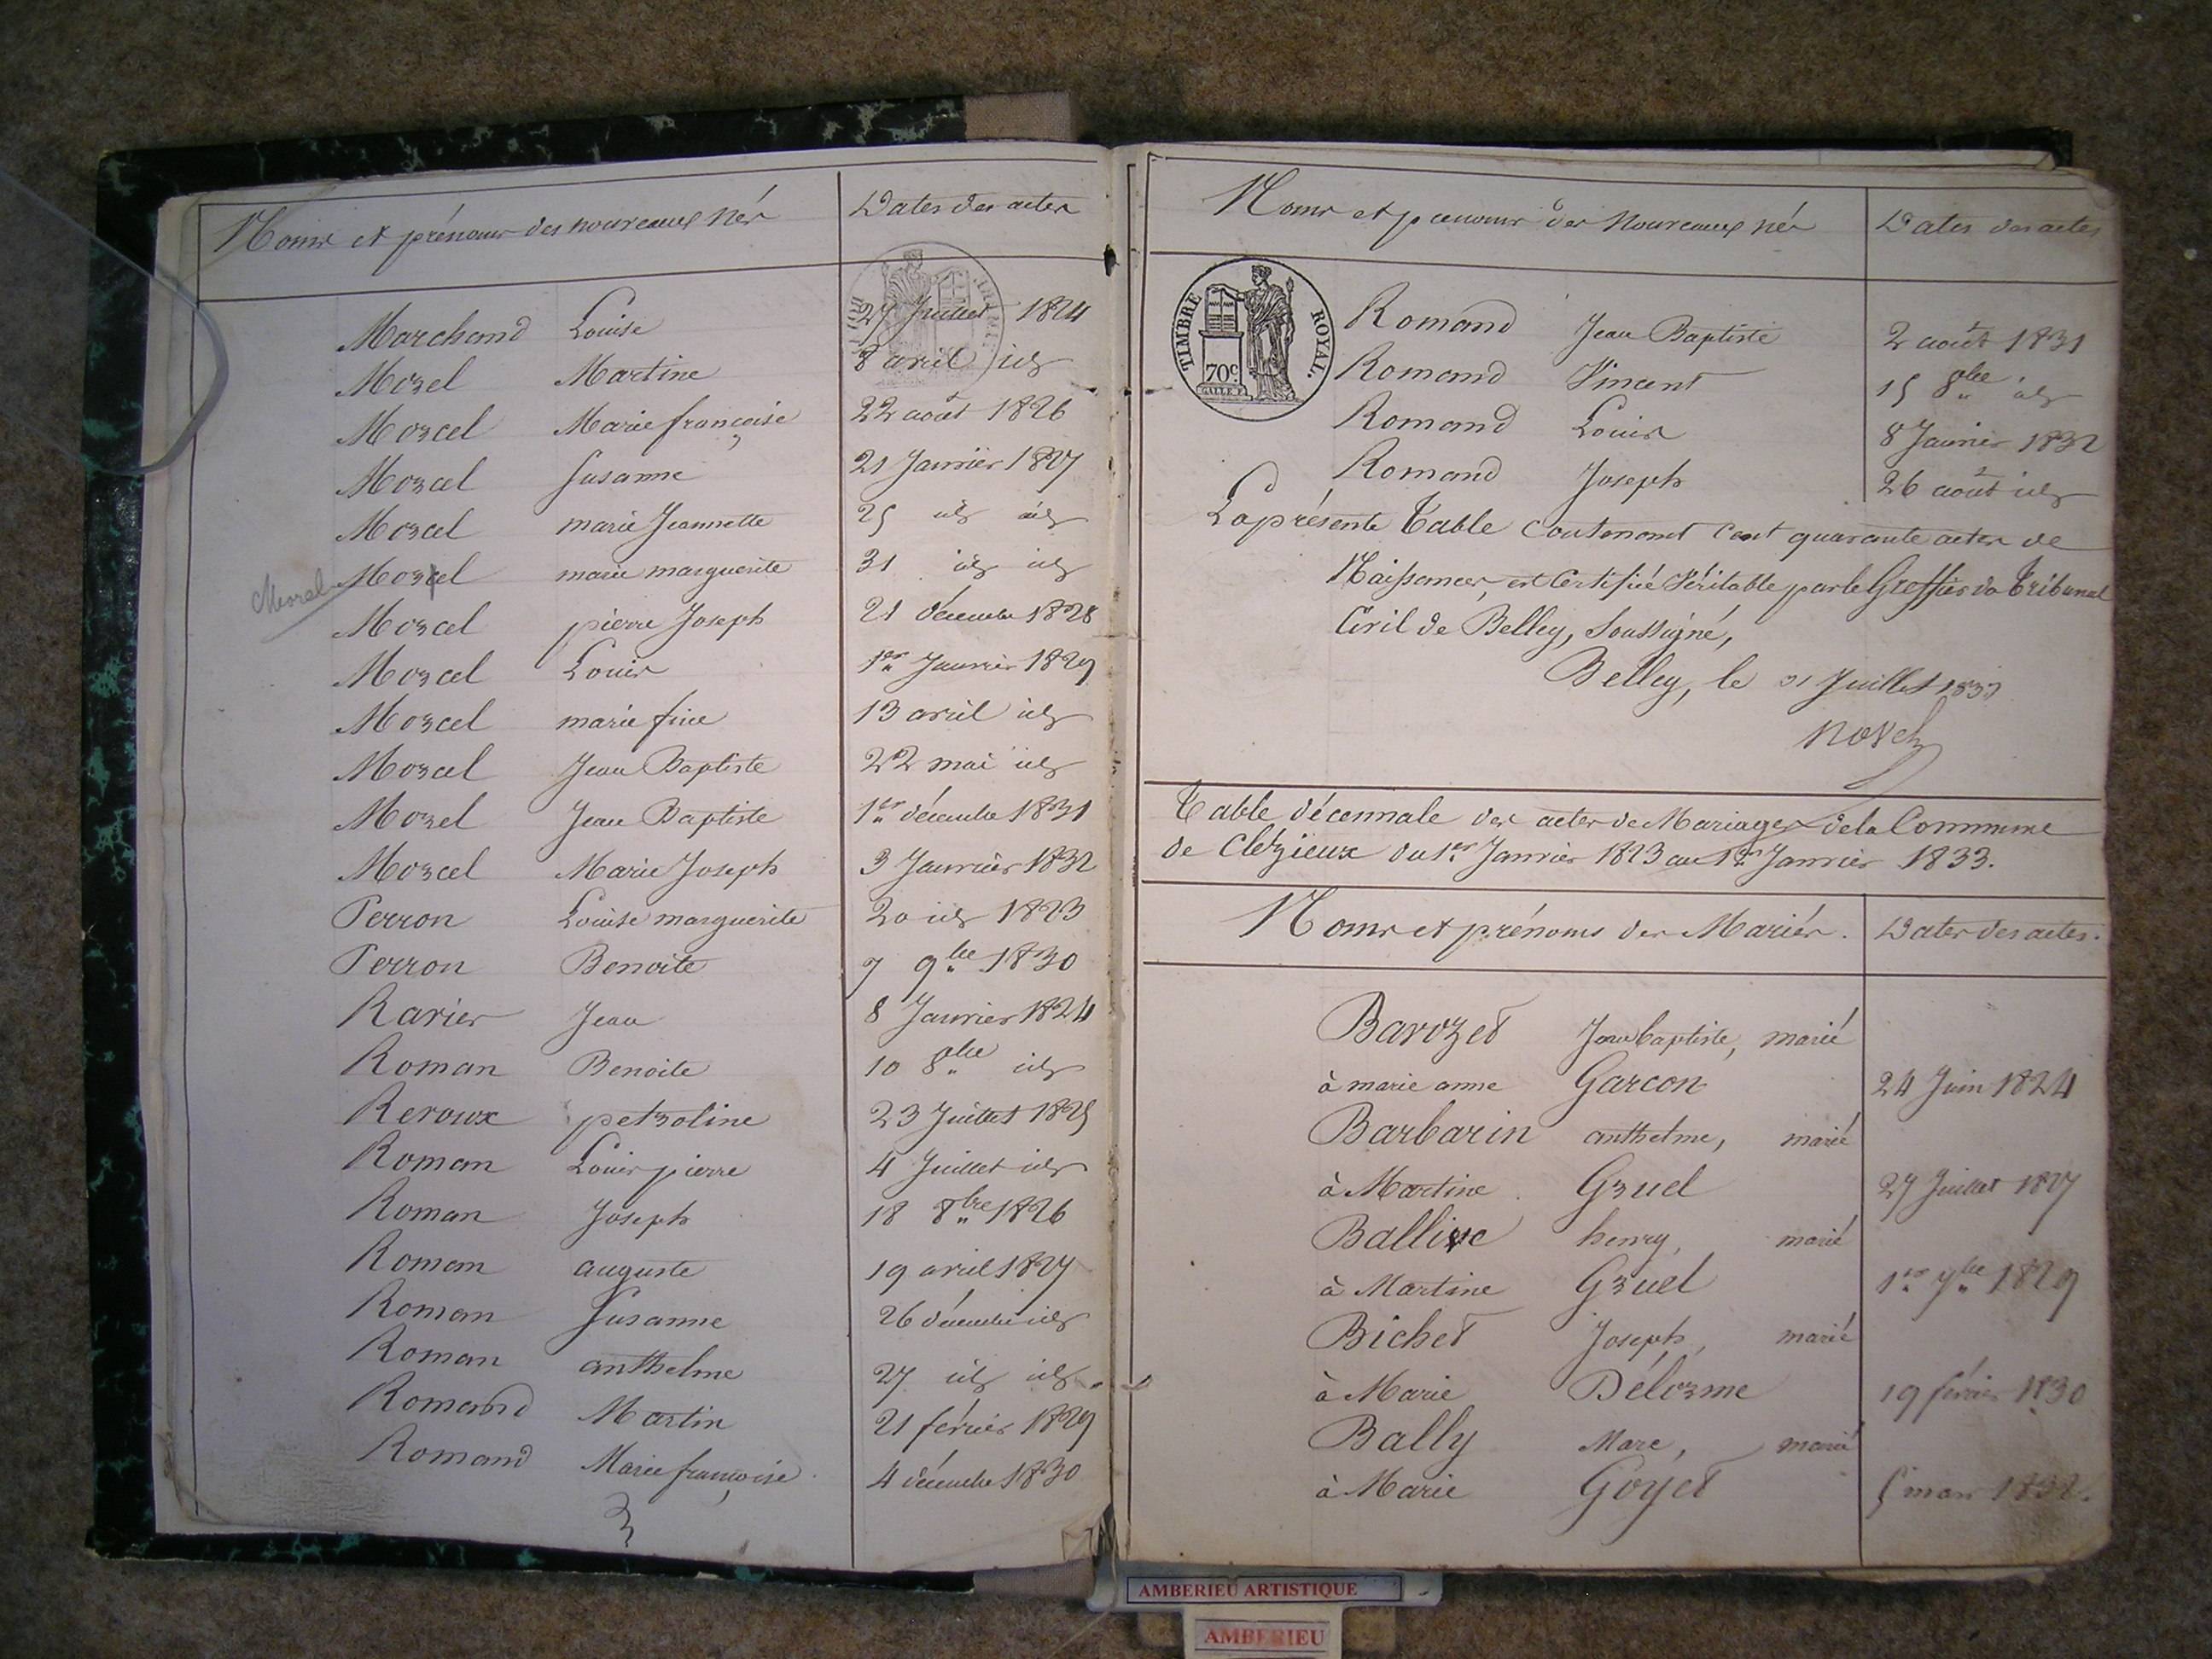 Noms et prénoms des nouveaux nés
Dates des actes
Marchand Louise 27 Juillet 1824
Morel Martine 8 avril id
Morel Marie françoise 22 août 1826
Morel Susanne 21 Janvier 1827
Morel marie Jeannette 25 id id
Morel
Morel marie marguerite 31 id id
Morel pierre Joseph 21 décembre 1828
Morel Louis 1er Janvier 1829
Morel marie fine 13 avril id
Morel Jean Baptiste 22 mai id
Morel Jean Baptiste 1er décembre 1831
Morel Marie Joseph 3 Janvier 1832
Perron Louise marguerite 20 id 1823
Perron Benoite 7 9bre 1830
Ravier Jean 8 Janvier 1824
Roman Benoite 10 8bre id
Reroux petroline 23 Juillet 1825
Roman Louis pierre 4 Juillet id
Roman Joseph 18 8bre 1826
Roman auguste 19 avril 1827
Roman Susanne 26 décembre id
Roman anthelme 27 id id
Romand Martin 21 février 1829
Romand Marie françoise 4 décembre 1830
Noms et prenoms des Nouveaux nés
Dates des actes
TIMBRE ROYAL.
70c
Romand Jean Baptiste 2 août 1831
Romand Vincent 15 8bre id
Romand Louis 8 Janvier 1832
Romand Joseph 26 août id
La présente Table Contenant Cent quarante actes de
Naissances, est Certifiée Véritable par le Greffier du Tribunal
Civil de Belley, Soussigné,
Belley, le 31 Juillet 1833
Table décennale des actes de Mariages de la Commune
de Cleyzieux du 1er Janvier 1823 au 1er Janvier 1833.
Noms et prénoms des Mariés.
Dates des actes.
Barozet Jean baptiste, marié
à marie anne Garcon 24 Juin 1824
Barbarin anthelme, marié
à Martine Gruel 27 Juillet 1827
Ballive henry, marié
à Martine Gruel 1er 7bre 1829
Bichet Joseph, marié
à Marie Délorme 19 février 1830
Bally Marc, marié
à Marie Goyet 5 mars 1832.
AMBERIEU ARTISTIQUE
AMBERIEU